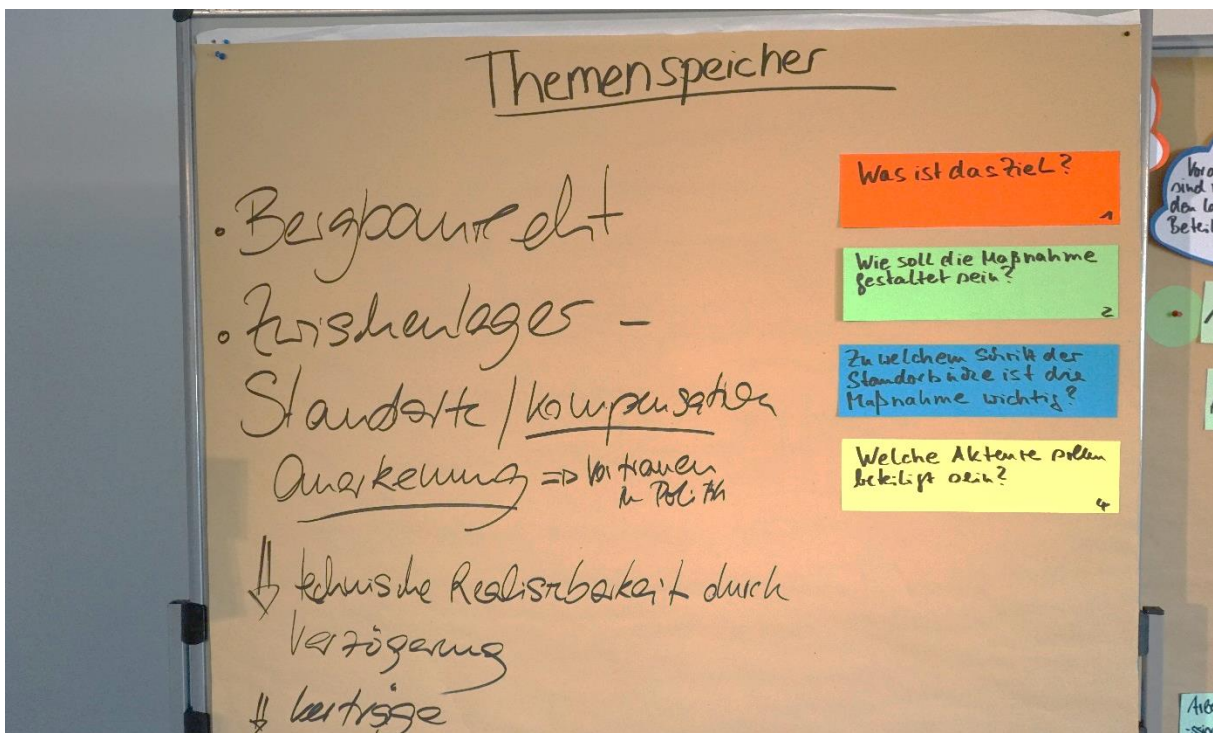 Themenspeicher
• Bergbaurecht
• Zwischenlager –
Standorte / Kompensation
Anerkennung => Vertrauen
in Politik
technische Realisierbarkeit durch
Verzögerung
Verträge
Was ist das Ziel?
1
Wie soll die Maßnahme
gestaltet sein?
2
Zu welchem Schritt der
Standortsuche ist die
Maßnahme wichtig?
Welche Akteure sollen
beteiligt sein?
4
sind